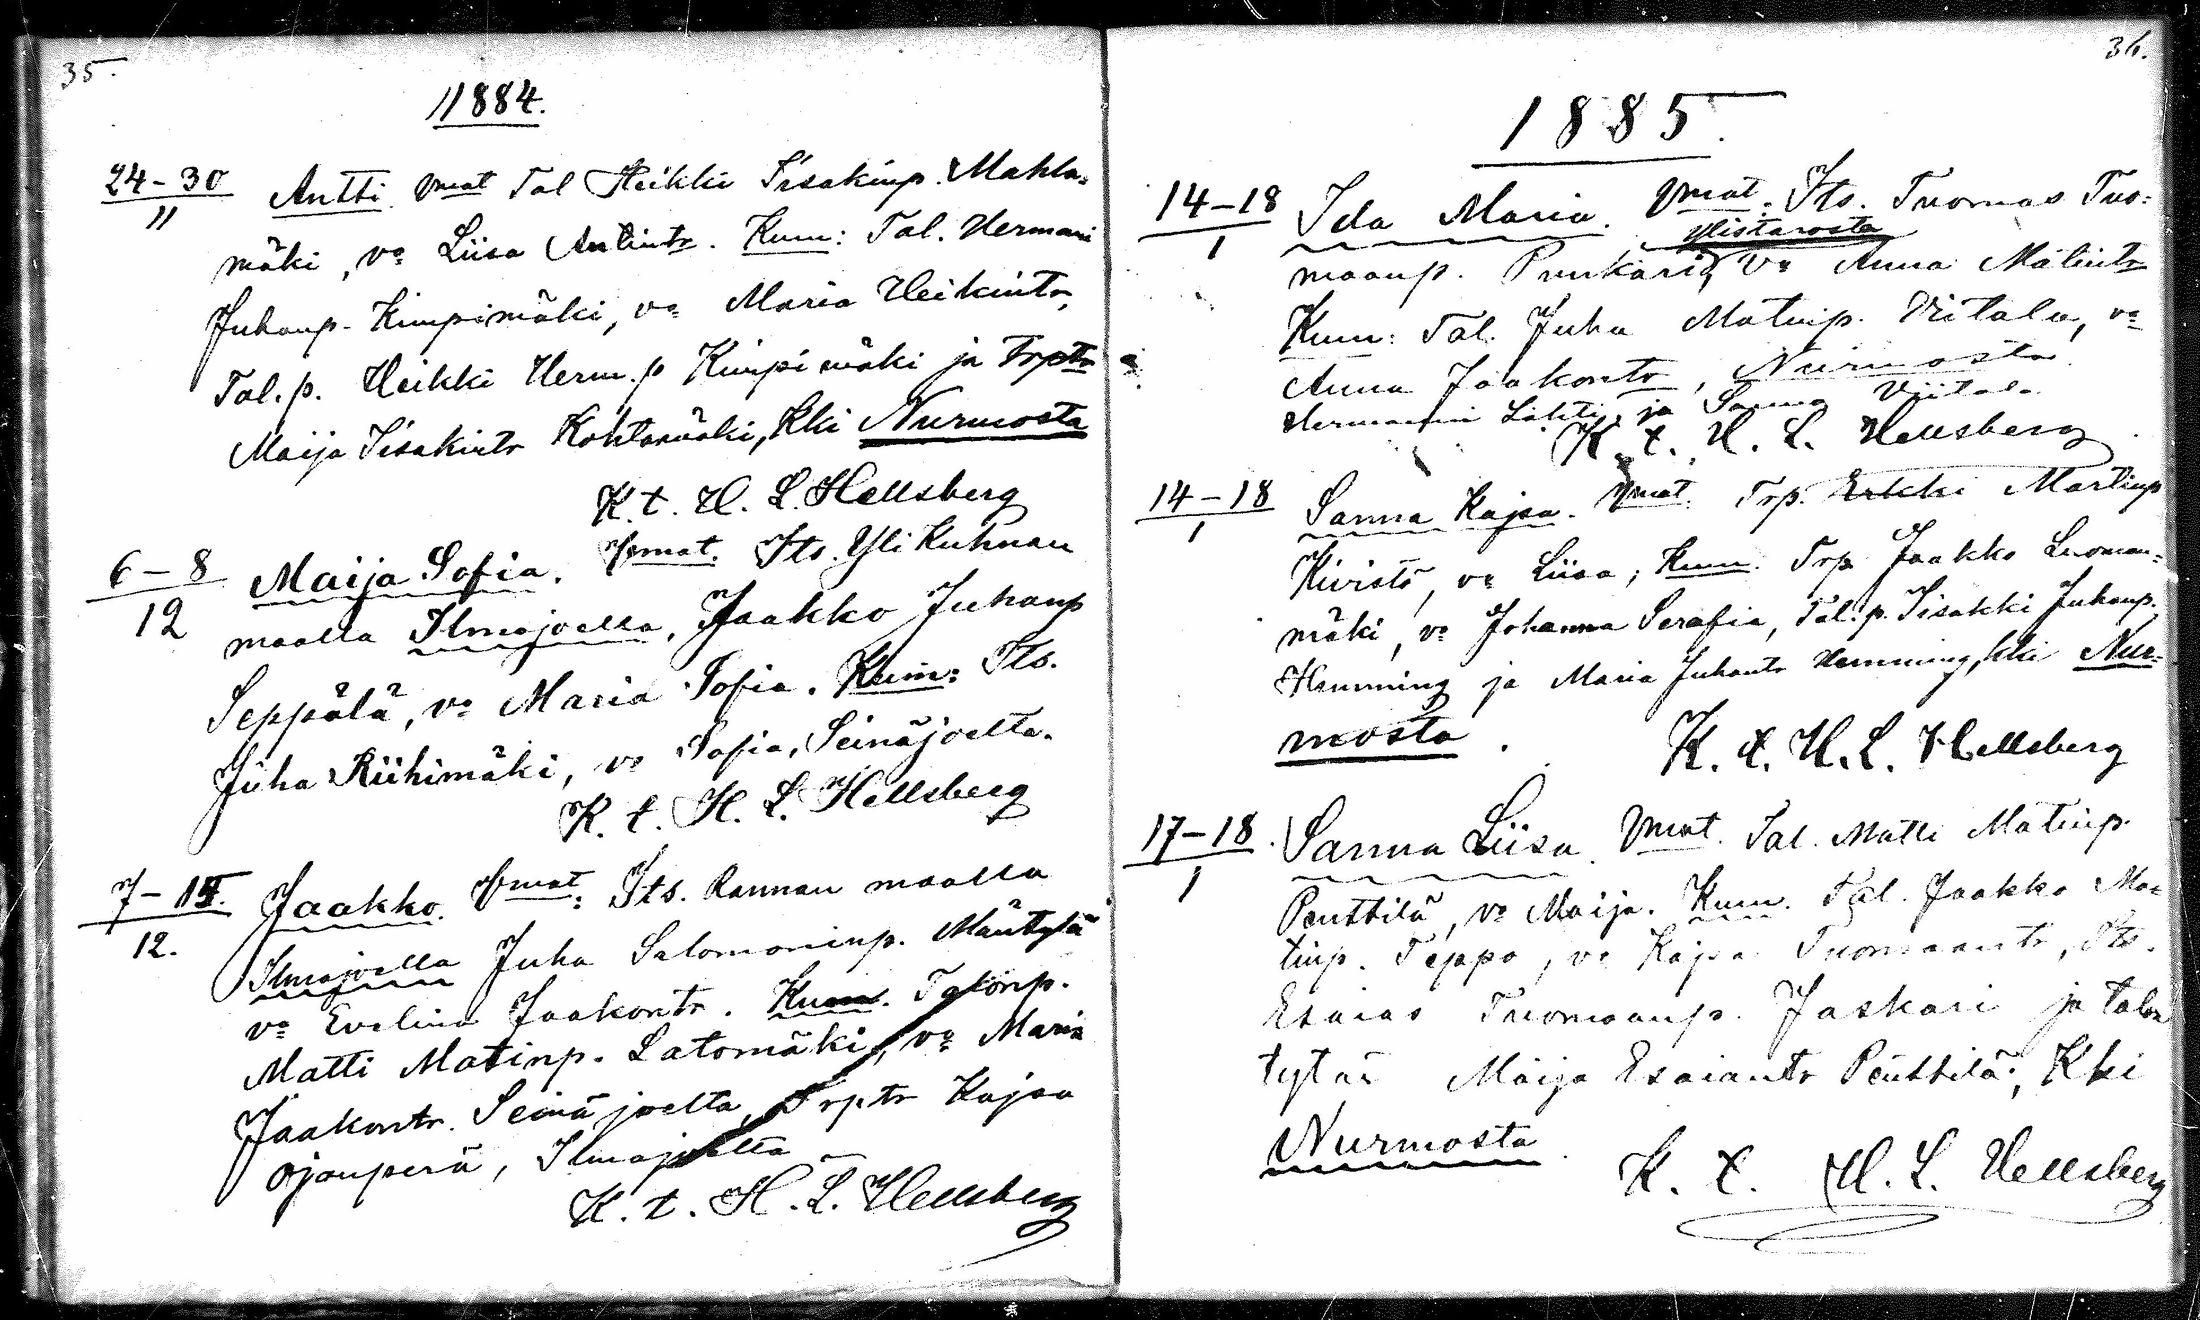 35.
11884.
24-30
11
Antti. Vmat Tal Heikki Iisakinp. Mahla-
mäki, vo Liisa Antintr. Kum: Tal. Hermani
Juhanp. Kimpimäki, vo Maria Heikintr,
Tal.p. Heikki Herm.p Kimpimäki ja Trptr
Maija Iisakintr Kohtamäki, kki Nurmosta
K. t. H. L. Hellsberg
6-8
12
Maija Sofia. Vmat. Its. Yli Kuhnan
maalla Ilmajoella, Jaakko Juhanp
Seppälä, vo Maria Sofia. Kum: Its.
Juha Riihimäki, vo Sofia, Seinäjoelta.
K. t. H. L. Hellsberg
7-14.
12.
Jaakko. Vmat: Its. Rannan maalla
Ilmajoella Juha Salomoninp. Mäntylä
vo Evelina Jaakontr. Kum.
Matti Matinp. Latomäki, vo Maria
Jaakontr. Seinäjoelta, Trptr Kajsa
Ojanperä, Ilmajoelta
K. t. H. L. Hellsberg
36.
1885.
14-18
1
Ida Maria. Vmat. Its. Tuomas Tuo-
Ylistarosta
maanp. Punkari, vo Anna Matintr
Kum: Tal. Juha Matinp. Viitala, vo
Anna Jaakontr, Nurmosta
Hermanni Lahti ja Sanna Viitala
K. t. H. L. Hellsberg
14-18
1
Sanna Kajsa. Vmat. Trp. Erkki Martinp
Kivistö, vo Liisa; Kum. Trp Jaakko Luoman-
mäki, vo Johanna Serafia, Tal.p. Iisakki Juhanp.
Hemming ja Maria Juhantr Hemming, kki Nur-
mosta.
K. t. H. L. Hellsberg
17-18.
1
Sanna Liisa. Vmat. Tal. Matti Matinp.
Penttilä, vo Maija. Kum. Tal. Jaakko Ma-
tinp. Teppo, vo Kajsa Tuomaantr, Its.
Esaias Tuomaanp. Jaskari ja talon
tytär Maija Esaiantr Penttilä, Kki
Nurmosta.
K. t. H. L. Hellsberg